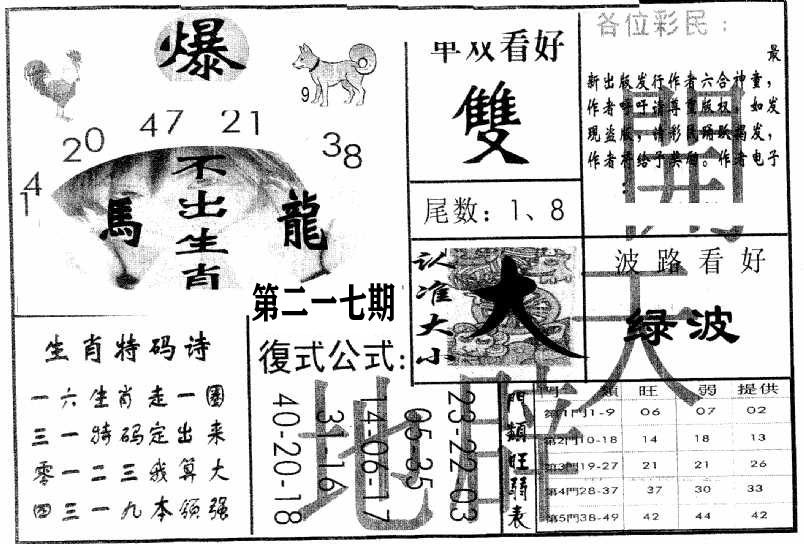 爆
9
47 21
20 38
41
不出生肖
馬 龍
单双看好
雙
尾数：1、8
各位彩民：
最
新出版发行作者六合神童，
作者呼吁请尊重版权，如发
现盗版，请彩民踊跃揭发，
作者将给予奖励。作者电子
：
開天地時
认准大小
大
波路看好
绿波
第二一七期
生肖特码诗
一六生肖走一圈
三一特码定出来
零一二三我算大
四三一九本领强
復式公式：
40-20-18
31-16
14-06-17
05-35
23-22-03
門類旺弱表
門類 旺 弱 提供
第1門1-9 06 07 02
第2門10-18 14 18 13
第3門19-27 21 21 26
第4門28-37 37 30 33
第5門38-49 42 44 42